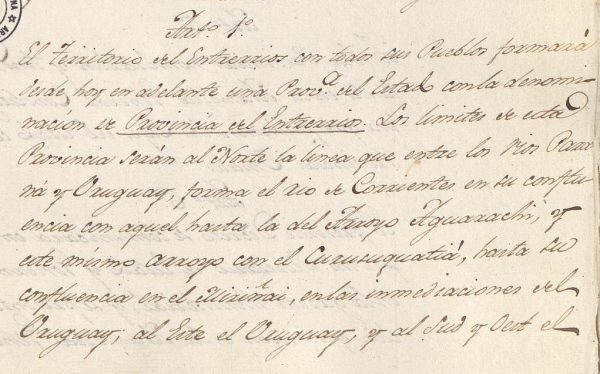 Arto. 1o.
El Territorio del Entrerrios con todos sus Pueblos formará
desde hoy en adelante una Prova. del Estado con la denomi
nación de Provincia del Entrerrios. Los limites de esta
Provincia serán al Norte la linea que entre los rios Para
ná y Uruguay, forma el rio de Corrientes en su conflu
encia con aquel hasta la del Arroyo Aguarachi, y
este mismo arroyo con el Curusuquatiá, hasta su
confluencia en el Miriñai, en las inmediaciones del
Uruguay, al Este el Uruguay, y al Sud y Oest el